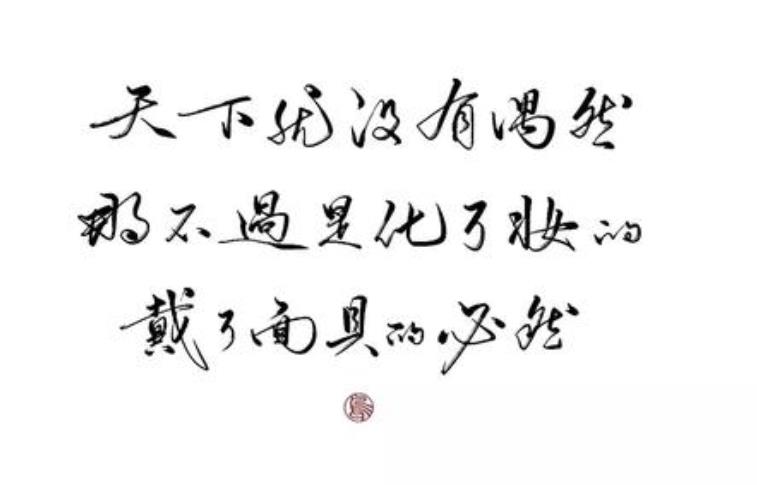 天下就没有偶然
那不過是化了妝的
戴了面具的必然